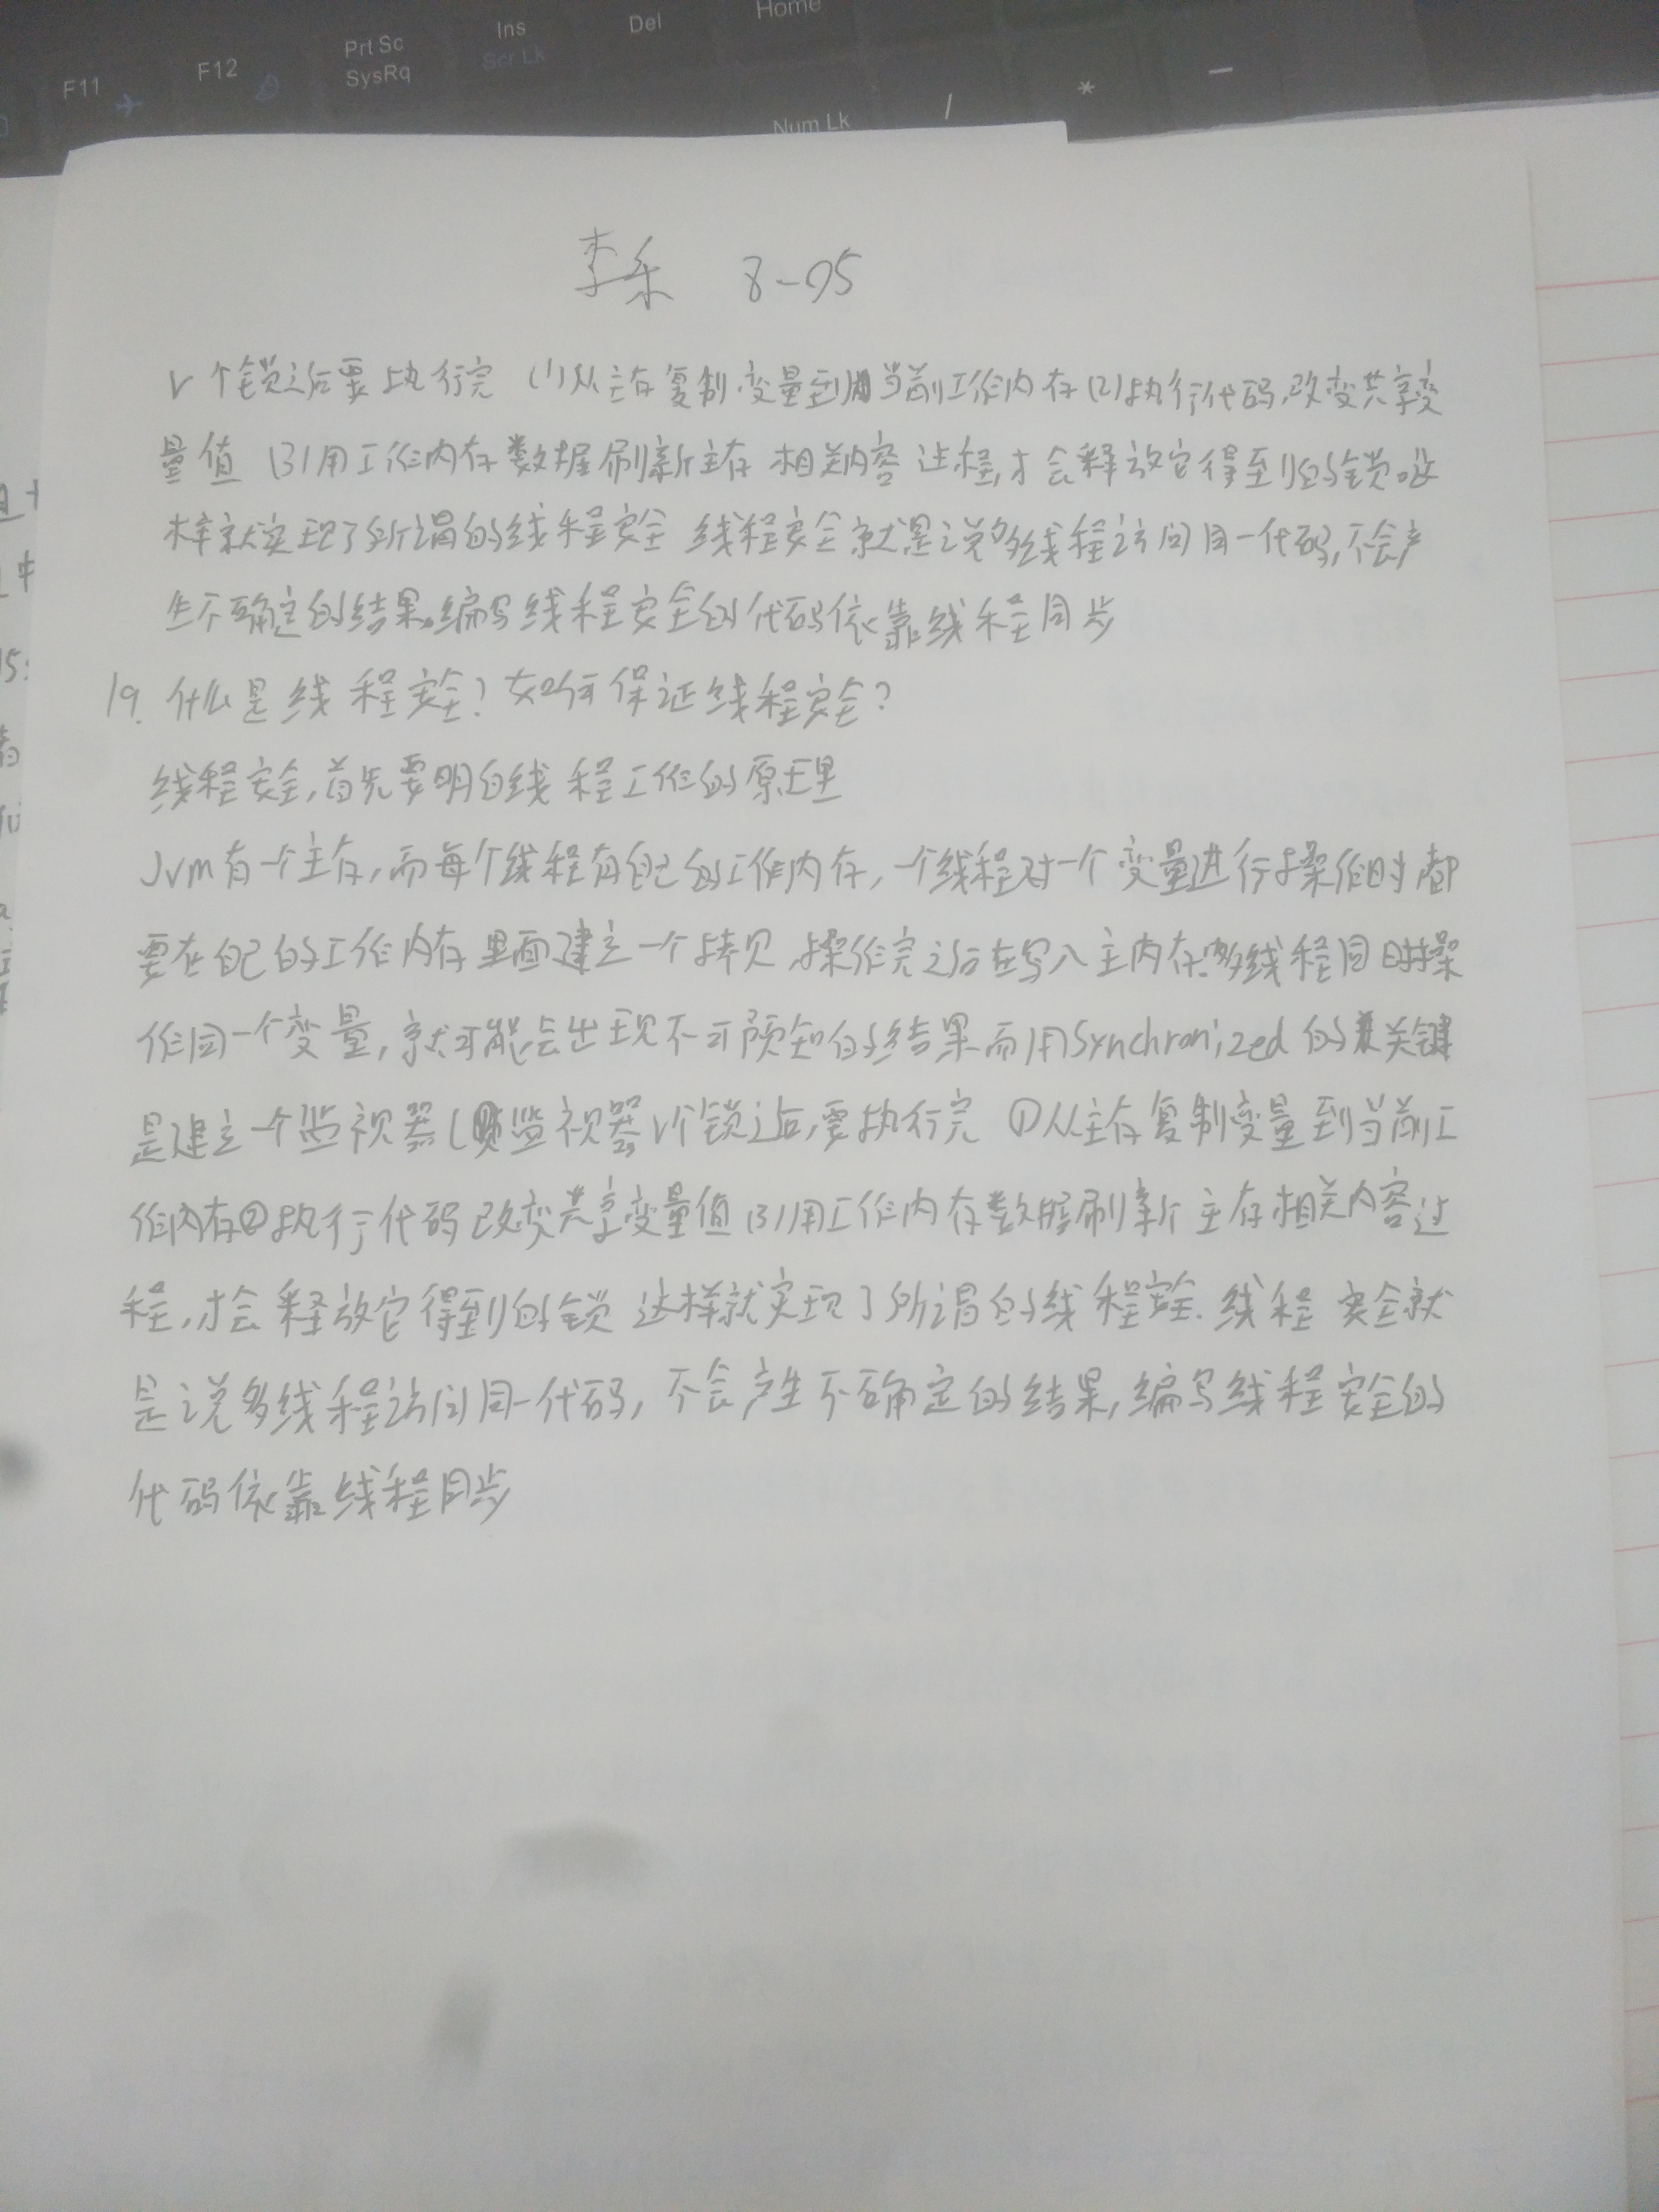 Home
Del
Ins
Scr Lk
Prt Sc
SysRq
F12
F11
Num Lk
/
*
-
李乐 8-05
v个锁之后要执行完 (1)从主存复制变量到当前工作内存(2)执行代码,改变共享变
量值 (3)用工作内存数据刷新主存相关内容过程,才会释放它得到的锁这
样就实现了所谓的线程安全 线程安全就是说多线程访问同一代码,不会产
生不确定的结果,编写线程安全的代码依靠线程同步
19. 什么是线程安全?如何保证线程安全?
线程安全,首先要明白线程工作的原理
Jvm有一个主存,而每个线程有自己的工作内存,一个线程对一个变量进行操作时都
要在自己的工作内存里面建立一个拷贝,操作完之后在写入主内存,多线程同时操
作同一个变量,就可能会出现不可预知的结果而用Synchronized的关键
是建立一个监视器(监视器v个锁之后,要执行完 ①从主存复制变量到当前工
作内存②执行代码改变共享变量值(3)用工作内存数据刷新主存相关内容过
程,才会释放它得到的锁 这样就实现了所谓的线程安全.线程安全就
是说多线程访问同一代码,不会产生不确定的结果,编写线程安全的
代码依靠线程同步